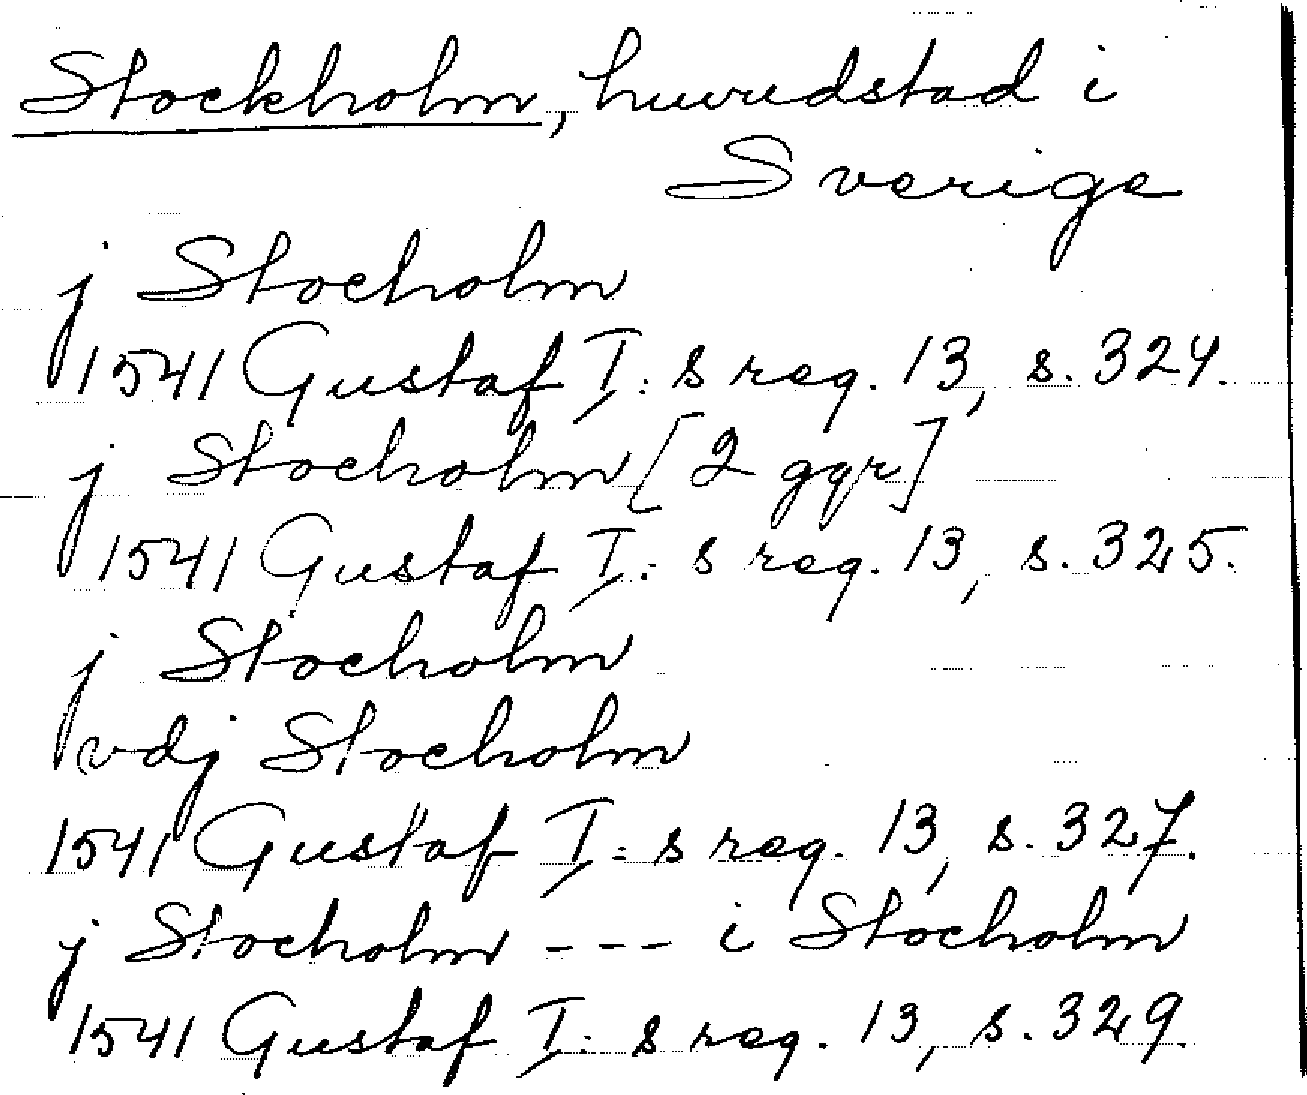 Stockholm, huvudstad i
Sverige
j Stocholm
1541 Gustaf I:s reg. 13, s. 324.
j Stocholm [2 ggr]
1541 Gustaf I:s reg. 13, s. 325.
j Stocholm
vdj Stocholm
1541 Gustaf I:s reg. 13, s. 327.
j Stocholm --- i Stocholm
1541 Gustaf I:s reg. 13, s. 329.